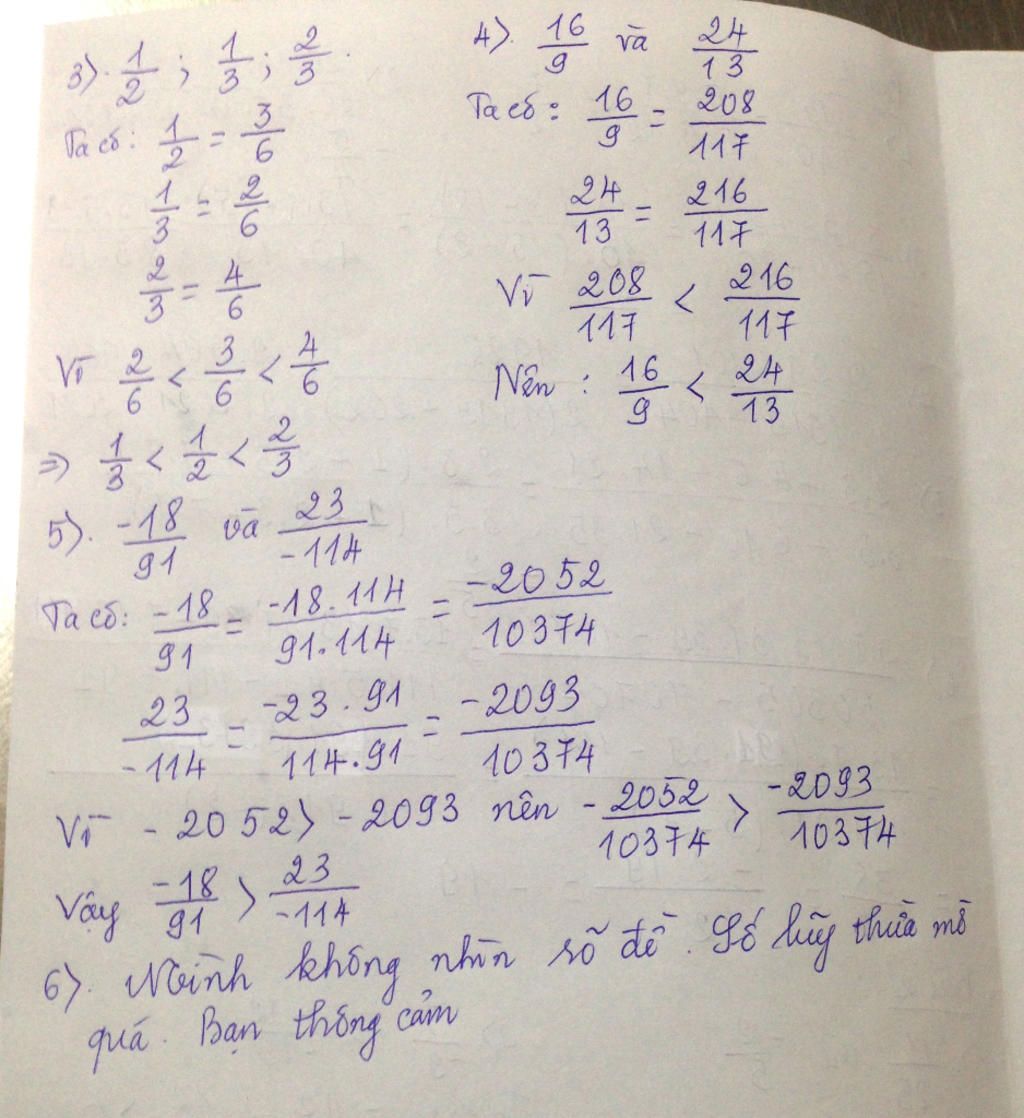 3). 1/2 ; 1/3 ; 2/3 .
Ta có: 1/2 = 3/6
1/3 = 2/6
2/3 = 4/6
Vì 2/6 < 3/6 < 4/6
=> 1/3 < 1/2 < 2/3
4). 16/9 và 24/13
Ta có: 16/9 = 208/117
24/13 = 216/117
Vì 208/117 < 216/117
Nên : 16/9 < 24/13
5). -18/91 và 23/-114
Ta có: -18/91 = -18.114/91.114 = -2052/10374
23/-114 = -23.91/114.91 = -2093/10374
Vì -2052 > -2093 nên -2052/10374 > -2093/10374
Vậy -18/91 > 23/-114
6). Mình không nhìn rõ đề. Số lũy thừa mờ
quá. Bạn thông cảm